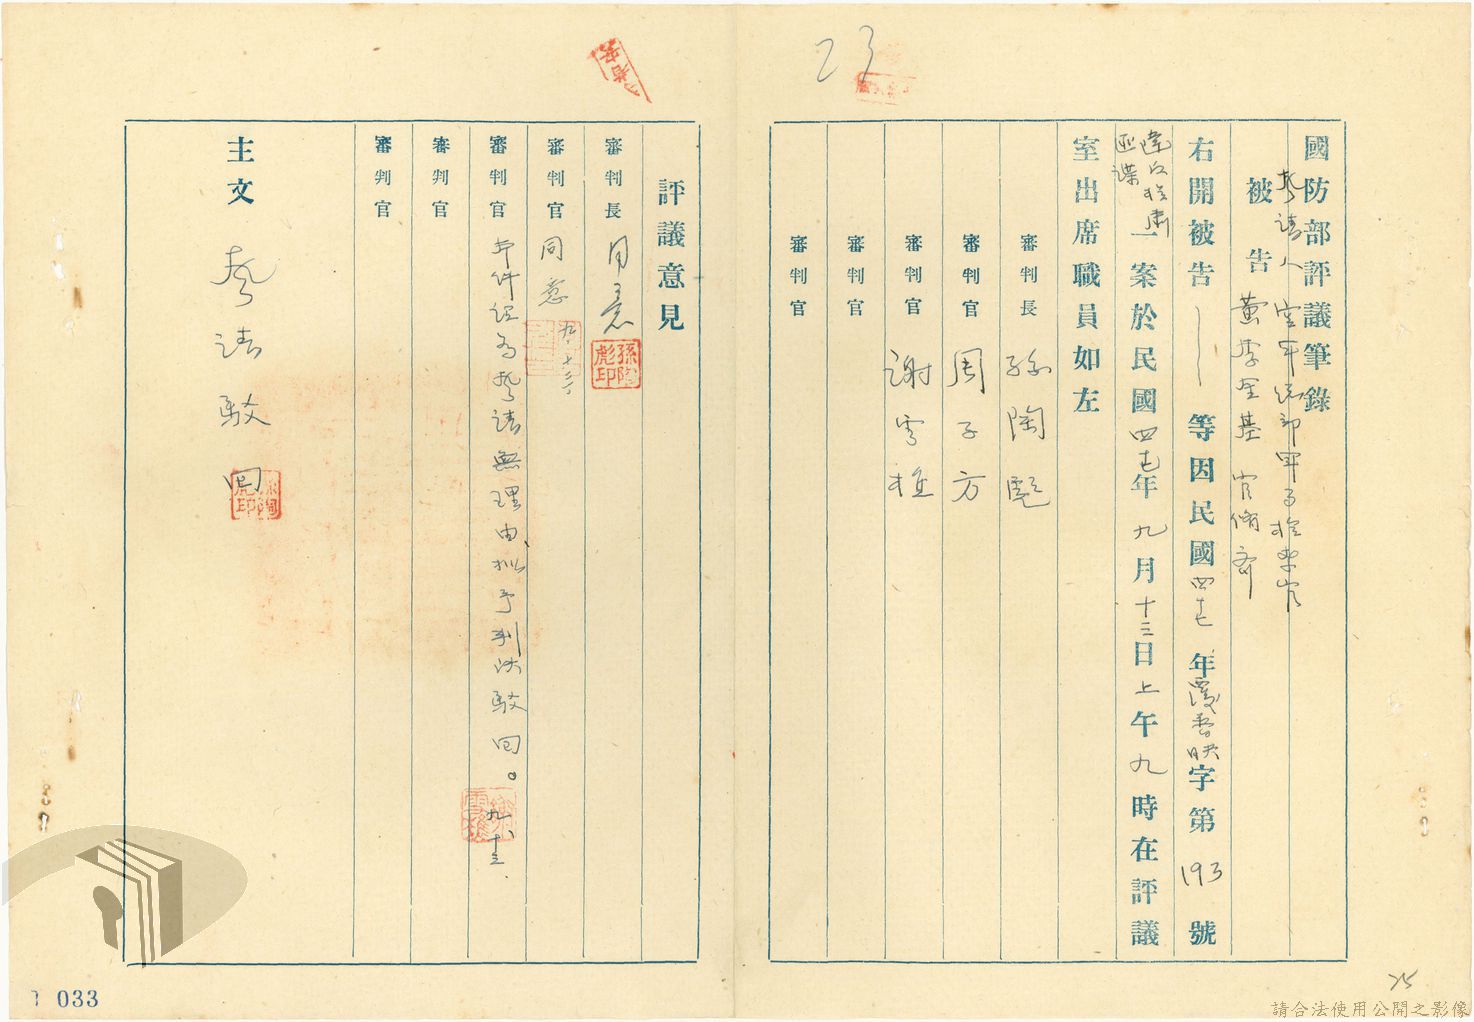 23
國防部評議筆錄
聲請人 空軍總部軍事檢察官
被告 黃李金基
右開被告 等因民國四七年覆普字第193號
一案於民國四七年九月十三日上午九時在評議
室出席職員如左
審判長 孫陶
審判官 周子方
審判官 謝雪樵
審判官
審判官
評議意見
審判長 同意
孫陶彪印
審判官 同意
審判官 本件認為聲請無理由擬予判決駁回。 九、十三、
審判官
審判官
主文 聲請駁回
033
25
請合法使用公開之影像